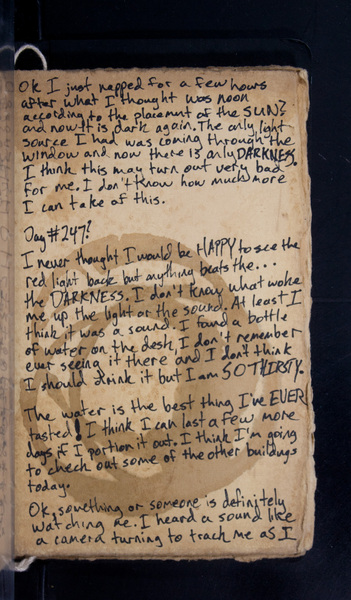 Ok I just napped for a few hours
after what I thought was noon
according to the placement of the SUN?
and now it is dark again. The only light
source I had was coming through the
window and now there is only DARKNESS.
I think this may turn out very bad
for me. I don't know how much more
I can take of this.
Day #247?
I never thought I would be HAPPY to see the
red light back but anything beats the...
the DARKNESS. I don't know what woke
me up the light or the sound. At least I
think it was a sound. I found a bottle
of water on the desk I don't remember
ever seeing it there and I don't think
I should drink it but I am SO THIRSTY.
The water is the best thing I've EVER
tasted! I think I can last a few more
days if I portion it out. I think I'm going
to check out some of the other buildings
today.
Ok, something or someone is definitely
watching me. I heard a sound like
a camera turning to track me as I